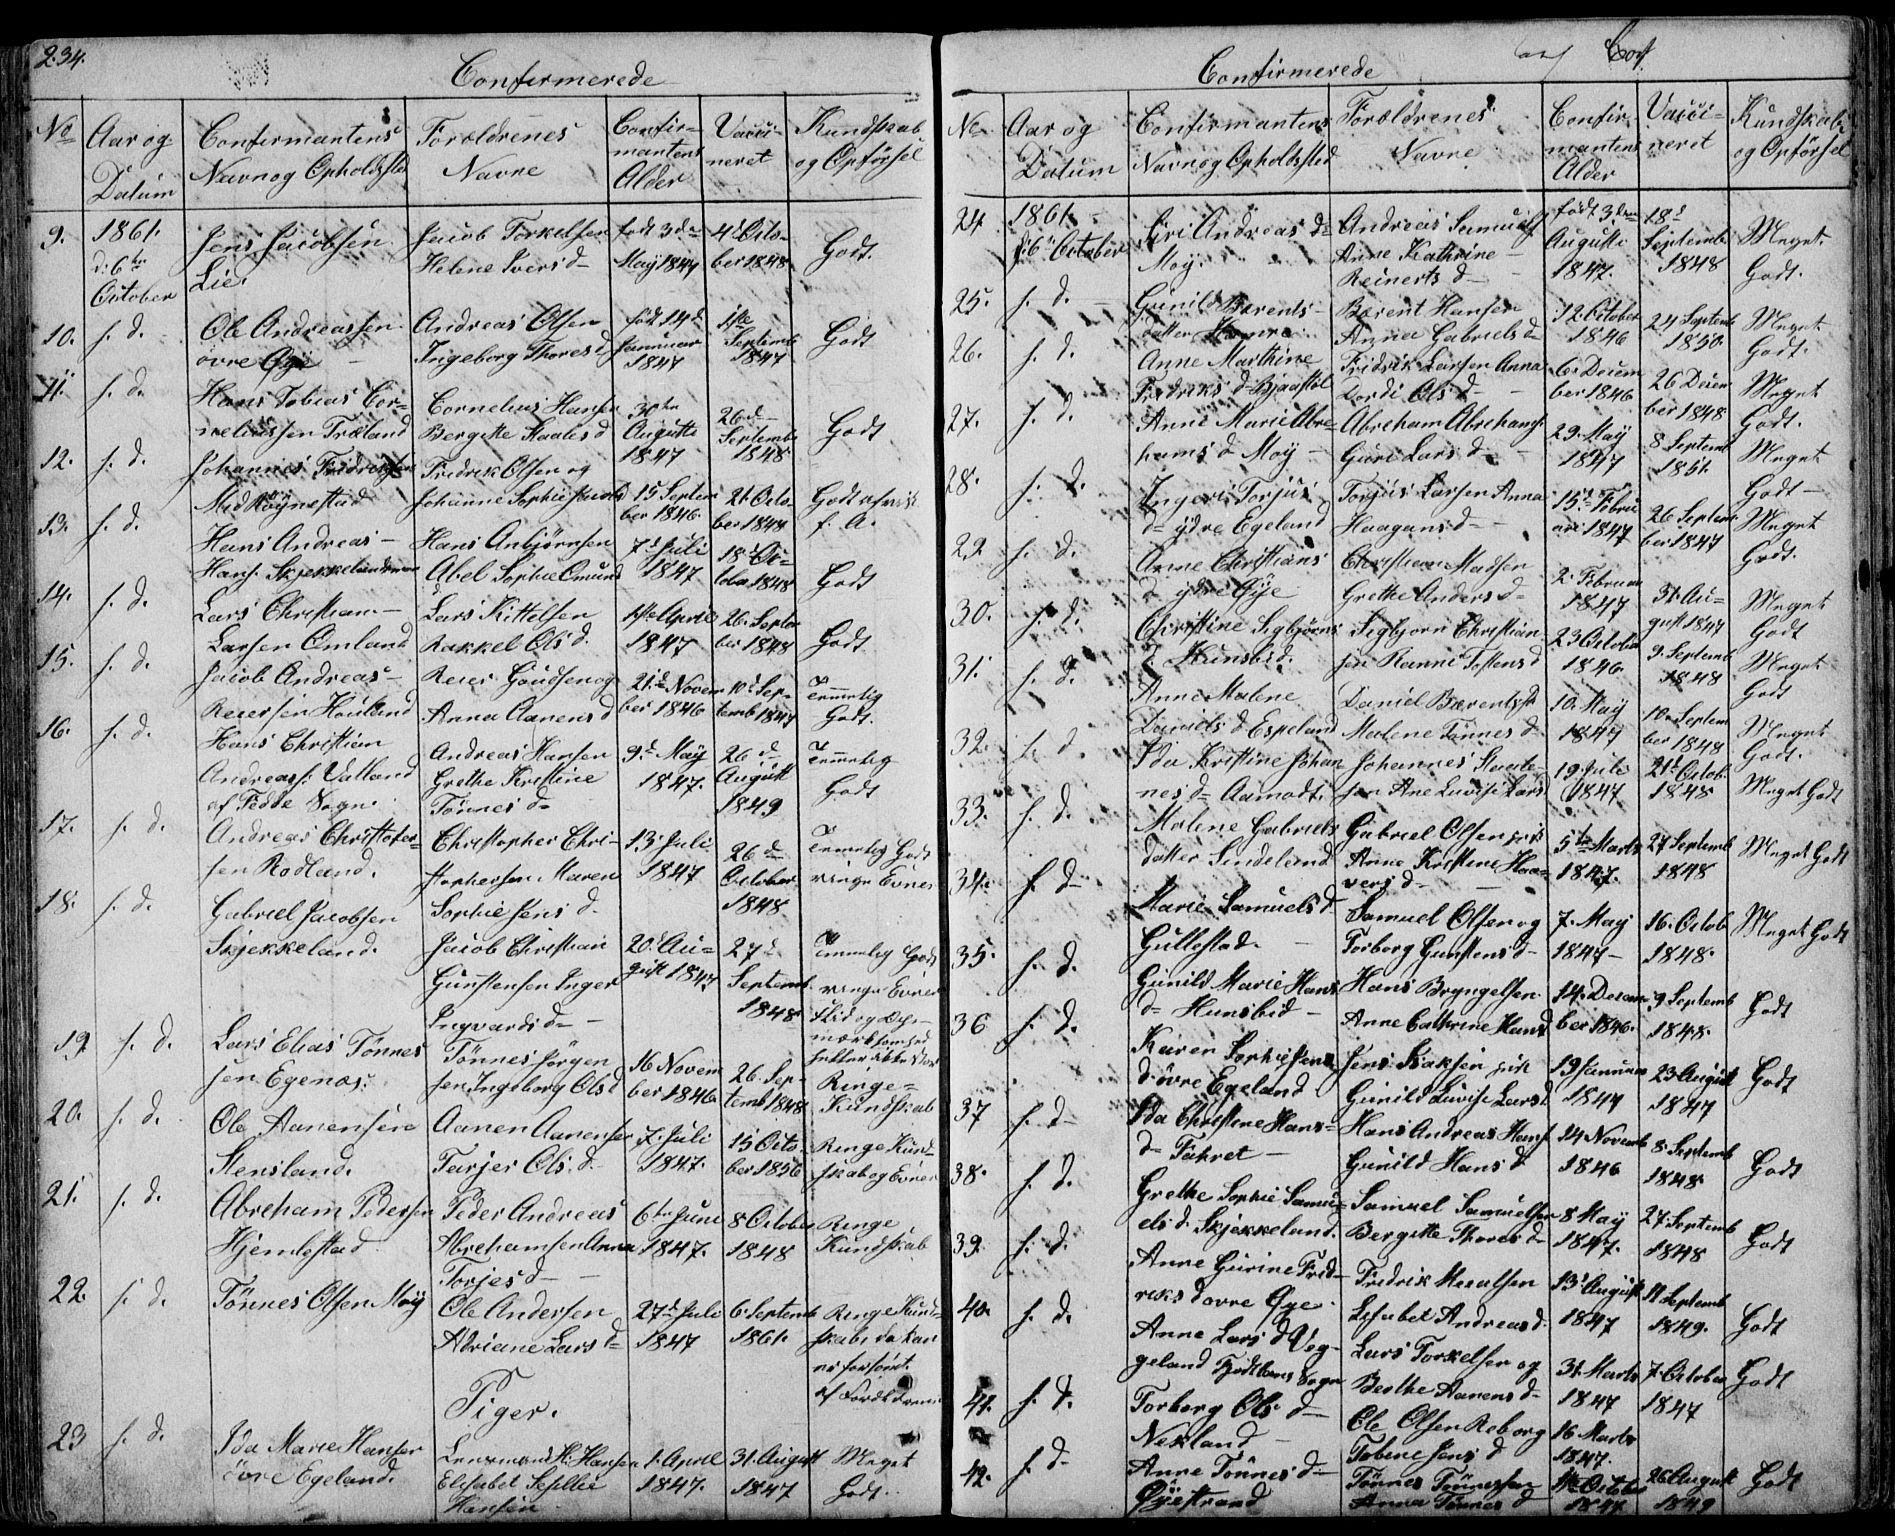 234.
Confirmerede
No Aar og Datum Confirmantens Navn og Opholdssted Forældrenes Navne Confirmantens Alder Vaccineret Kundskab og Opførsel
9. 1861. d: 6te October
Jens Jacobsen Lie.
Jacob Torkelsen Helene Ivers d=
født 3de May 1847
4d Octo= ber 1848
Godt.
10. s. d.
Ole Andreassen øvre Øye
Andreas Olsen Ingeborg Thores d
født 14d Januar 1847
Septemb 1847
Godt
11. s. d.
Hans Tobias Cor= neliussen Træland
Cornelius Hansen Bergitte Staales d
30te Augusti 1847
26d Septemb 1848
Godt
12. s. d.
Johannes Fredriksen Midrøynestad
Fredrik Olsen og Johanne Sophie
15 Septem ber 1846.
26 Octo= ber 1847
Godt
13. s. d.
Hans Andreas Hans. Skjekkeland
Hans Anbjørnsen Abel Sophie Omund d
7d Juli 1847
18d Oc= tober 1848
Godt
14. s. d.
Lars Christian Larsen Omland
Lars Kittelsen Rakkel Ols d.
1ste April 1847
26. Septem ber 1848
Godt
15. s. d.
Jacob Andreas Reiersen Houland
Reier Goudsen og Anna Aanens d
21d Novem ber 1846
10d Sep= temb 1847
Temmelig Godt.
16. s. d.
Hans Christian Andreass: Valland af Fedde Sogn
Andreas Hansen Grethe Kristine Tønnes d=
9d May 1847.
26d August 1849
Temmelig Godt
17. s. d.
Andreas Christofer= sen Rødland.
Christopher Chri= stophersen Maren Sophie Jens d.
13d Juli 1847
26d October 1848
Temmelig Godt ringe Evner
18. s. d.
Gabriel Jacobsen Skjekkeland.
Jacob Christian Gunstensen Inger Ingvards d=
20d Au= gust 1847
27d Septemb. 1848
Temmelig Godt ringe Evner Flid og Op= mærksomhed
19. s. d.
Lars Elias Tønnes sen Egenæs.
Tønnes Jørgen sen Ingeborg Ols d
16 Novem ber 1846
26. Sep= temb 1848
Ringe= Kundskab
20. s. d.
Ole Aanensen Stensland.
Aanen Aanensen Tarjer Ols. d.
7. Juli 1847.
15 Octo= ber 1856
Ringe Kund= skab og Evner
21. s. d.
Abreham Pedersen Hjemlestad
Peder Andreas Abrehamsen Anna Torjes d=
6te Juni 1847.
8 October 1848
Ringe Kundskab
22. s. d.
Tønnes Olsen Moy
Ole Andersen Adriane Lars d=
27d Juli 1847
6. Septemb 1861.
Ringe Kund= skab, da han er forsømt af Forældrene
Piger.
23 s. d.
Ida Marie Hansen øvre Egeland.
Lensmand H: Hansen Elisabet Hansen
1. April 1847.
31. August 1847
Meget Godt.
Confirmerede
No Aar og Datum Confirmantens Navn og Opholdssted Forældrenes Navne Confirmantens Alder Vaccineret Kundskab og Opførsel
24 1861. d: 6te October
Siri Andreas d= Moy.
Andreas Samuels Anne Kathrine Reinerts d
født 3de Augusti 1847.
18d Septemb 1848
Meget Godt.
25. s. d.
Gunild Bærents= datter
Bærent Hansen Anna Gabriels d=
12 October 1846
24 Septemb 1850.
Meget Godt.
26. s. d.
Anne Marthine Fredriks d= Bjaastøl
Fredrik Larsen Anna Dordi Ols d=
6. Decem ber 1846
26 Decem ber 1848
Meget Godt.
27. s. d.
Anne Marie Abre= hams d Moy
Abreham Abrehams. Guri Lars d
29. May 1847
8 Septemb 1851.
Meget Godt
28. s. d.
Ingeri Torjus d= ydre Egeland
Torjus Larsen Anna Haagans d=
15d Febru ari 1847
26 Septem ber 1847
Meget Godt.
29 s. d.
Anne Christians d ydre Øye
Christian Madsen Grethe Anders d=
2. Februar 1847
31. Au= gust 1847
Meget Godt
30. s. d.
Christine Segbjørns d. Hunsbed.
Segbjørn Christian sen Ranni d
23 October 1846
9. Septemb 1848
Meget Godt
31. s. d.
Anne Malene Daniels d Espeland
Daniel Bærentsen Malene Tønnes d
10. May 1847
10. Septem ber 1848
Meget Godt.
32. s. d.
Ida Kristine Johan nes d= Aamodt.
Johannes Staale= sen Ane Luvise Lars
19 Juli 1847
21d Octob. 1848
Meget Godt
33. s. d.
Malene Gabriels datter Sindeland
Gabriel Olsen Anne Kristine Haa= vers d=
5te Marts 1847.
27 Septemb 1848
Meget Godt
34. s. d=
Marie Samuels d Gullestad.
Samuel Olsen og Torborg Gunstens d=
7. May 1847
16. Octob 1848.
Meget Godt
35. s. d.
Gunild Marie Hans d= Hunsbed
Hans Bryngelsen Anne Cathrine Hans d
14. Decem ber 1846.
9 Septemb 1848.
Godt
36 s. d.
Karen Sophie Jens d. øvre Egeland
Jens Isaksen Gunild Luvise Lars d
19 Januar 1847
23 August 1847
Godt
37 s. d=
Ida Christine Hans= d= Fahret
Hans Andreas Hans Gunild Hans d
14 Novemb 1846
8. Septemb 1848.
Godt
38. s. d.
Grethe Sophie Samu= els d. Skjekkeland.
Samuel Samuelsen Bergitte Thores d=
8 May 1847.
27. Septemb 1848
Godt
39. s. d.
Anne Gurine Fred= riks d øvre Øye
Fredrik Lisabet Andreas d.
13d August 1847
11 Septemb 1849.
Godt
40. s. d.
Anne Lars d Veg= geland Sogn
Lars Torkelsen og Berthe Aanens d=
31. Marts 1847
7. October 1847
Godt
41. s. d.
Torborg Ols d= Nekland
Ole Olsen Tobine Jens d
16 Marts 1847.
42. s. d=
Anne Tønnes d= Øyestrand
Tønnes Tønnessen Anna Tønnes d
October
26 August 1849
Godt